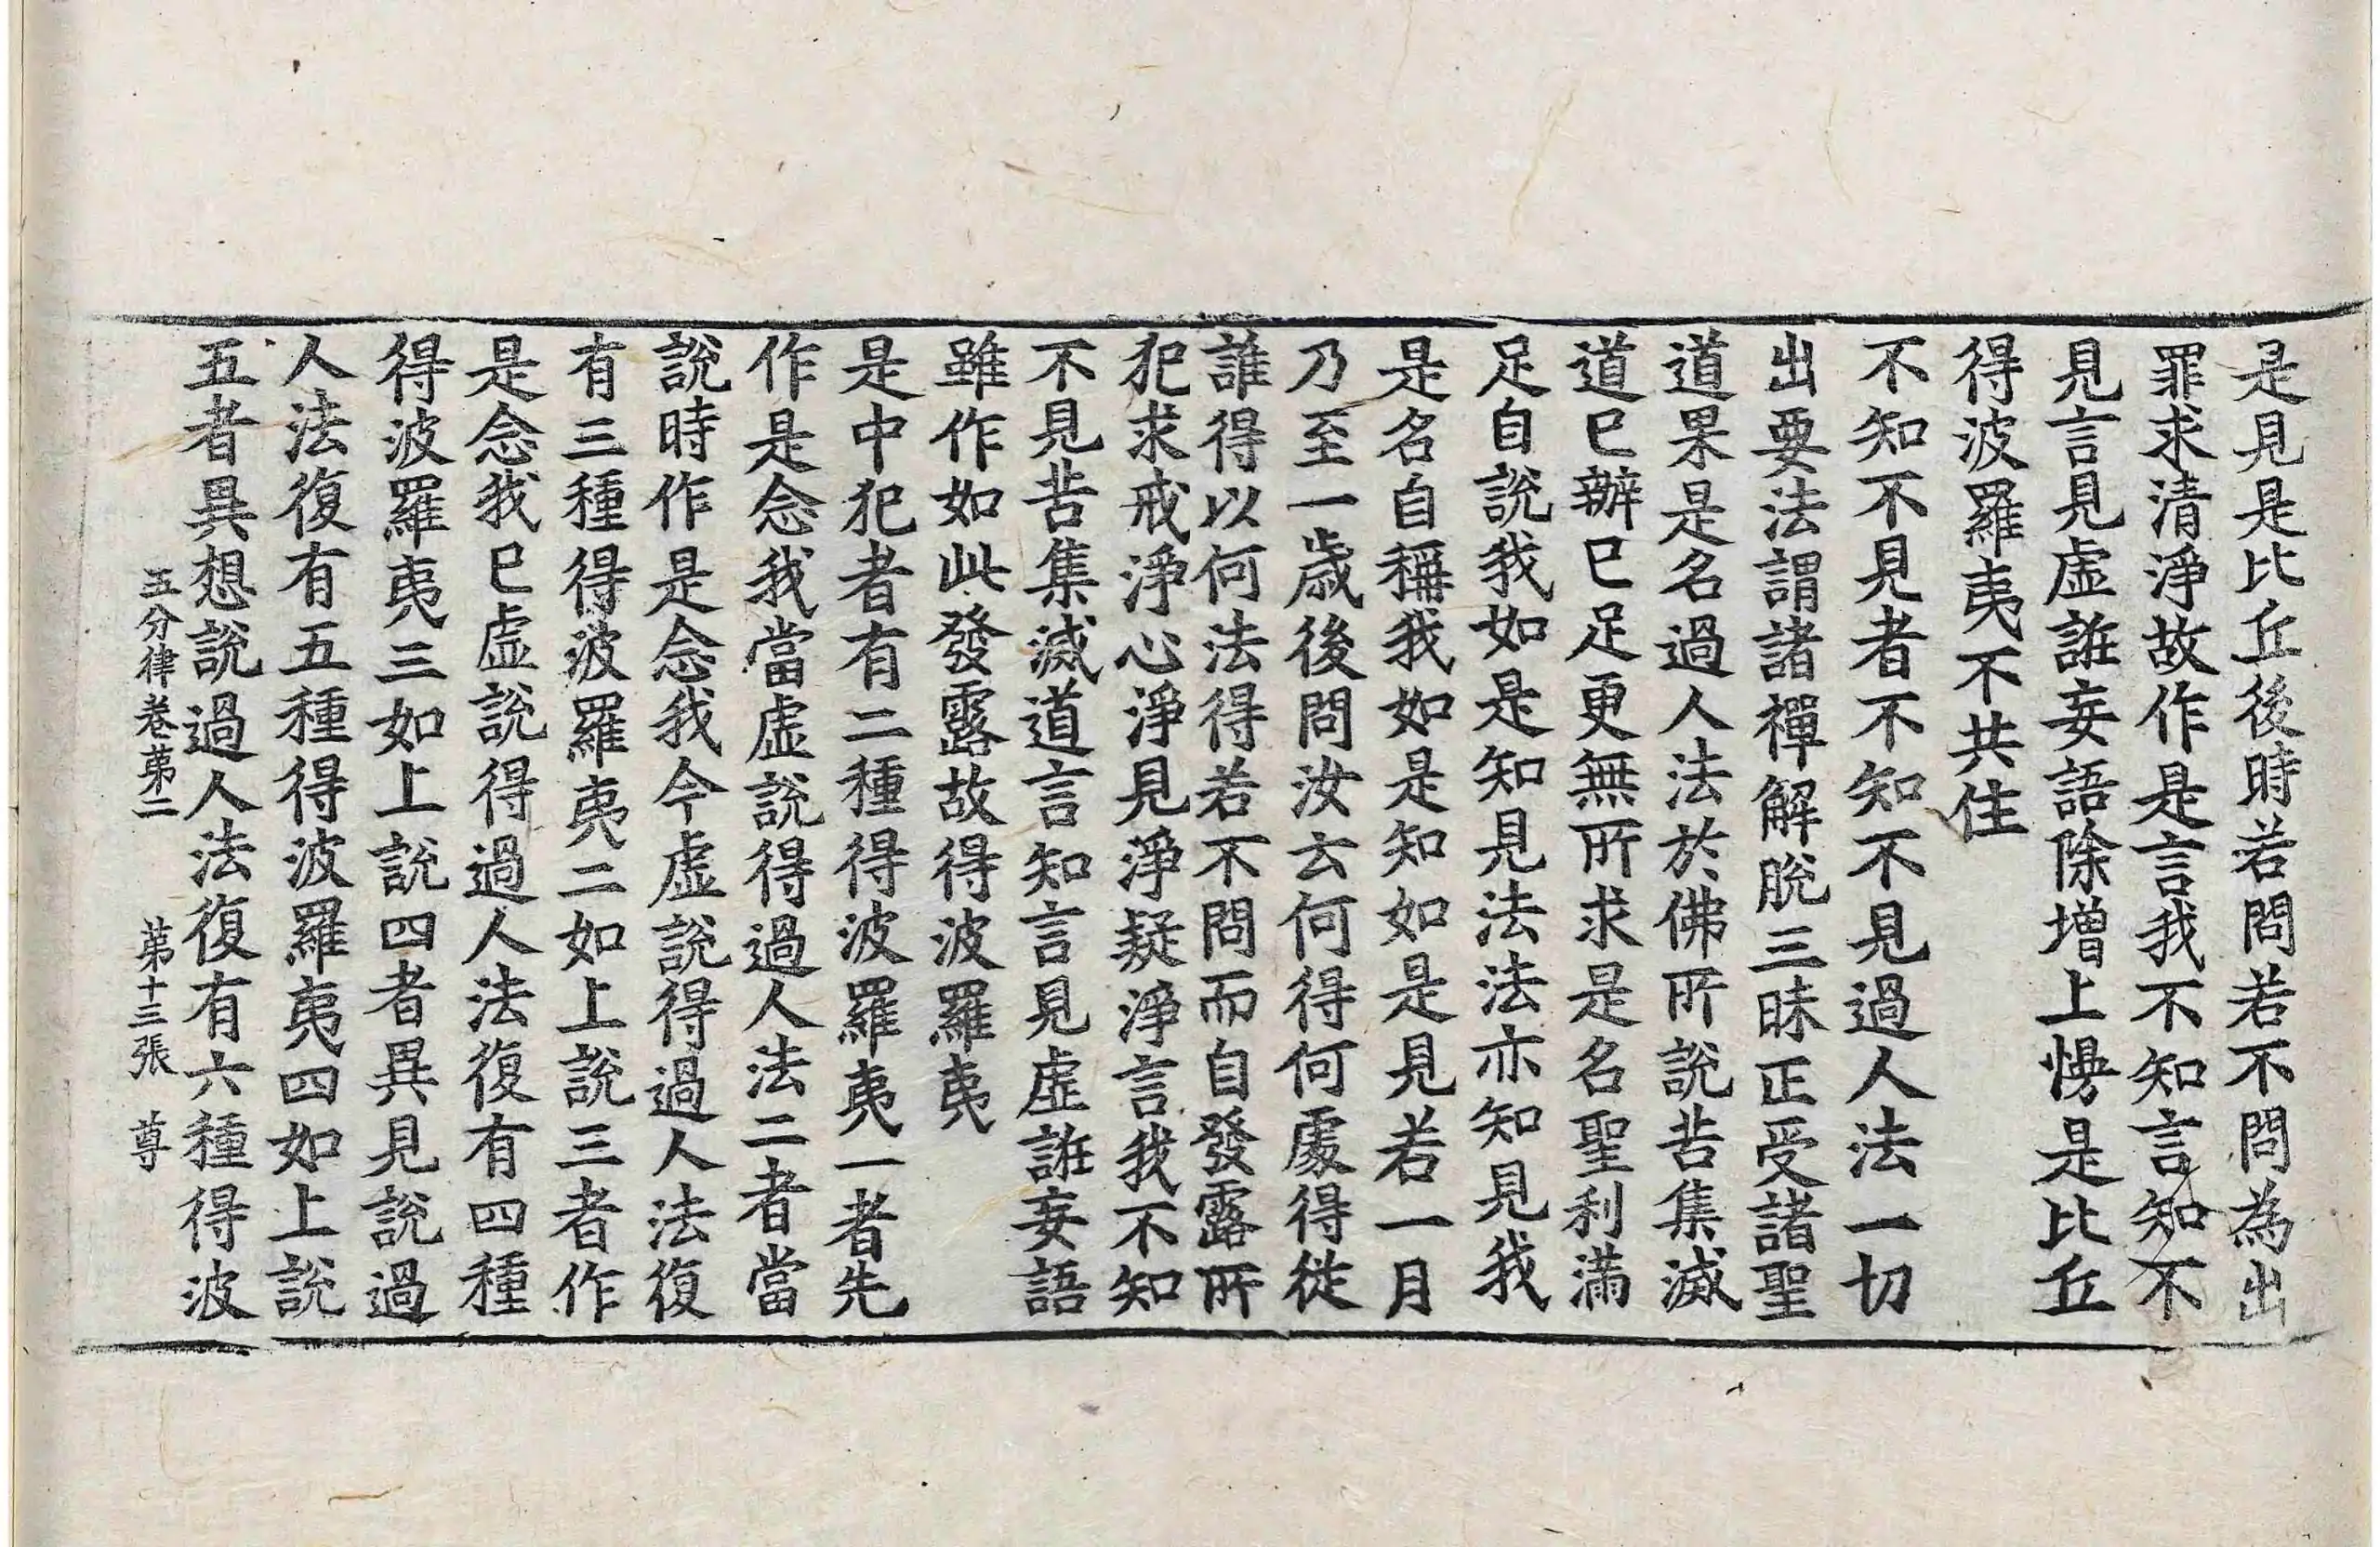 是見是比丘後時若問若不問為出
罪求清淨故作是言我不知言知不
見言見虛誑妄語除增上慢是比丘
得波羅夷不共住
不知不見者不知不見過人法一切
出要法謂諸禪解脫三昧正受諸聖
道果是名過人法於佛所說苦集滅
道已辦已足更無所求是名聖利滿
足自說我如是知見法法亦知見我
是名自稱我如是知如是見若一月
乃至一歲後問汝云何得何處得從
誰得以何法得若不問而自發露所
犯求戒淨心淨見淨疑淨言我不知
不見苦集滅道言知言見虛誑妄語
雖作如此發露故得波羅夷
是中犯者有二種得波羅夷一者先
作是念我當虛說得過人法二者當
說時作是念我今虛說得過人法復
有三種得波羅夷二如上說三者作
是念我已虛說得過人法復有四種
得波羅夷三如上說四者異見說過
人法復有五種得波羅夷四如上說
五者異想說過人法復有六種得波
五分律卷第二 第十三張 尊